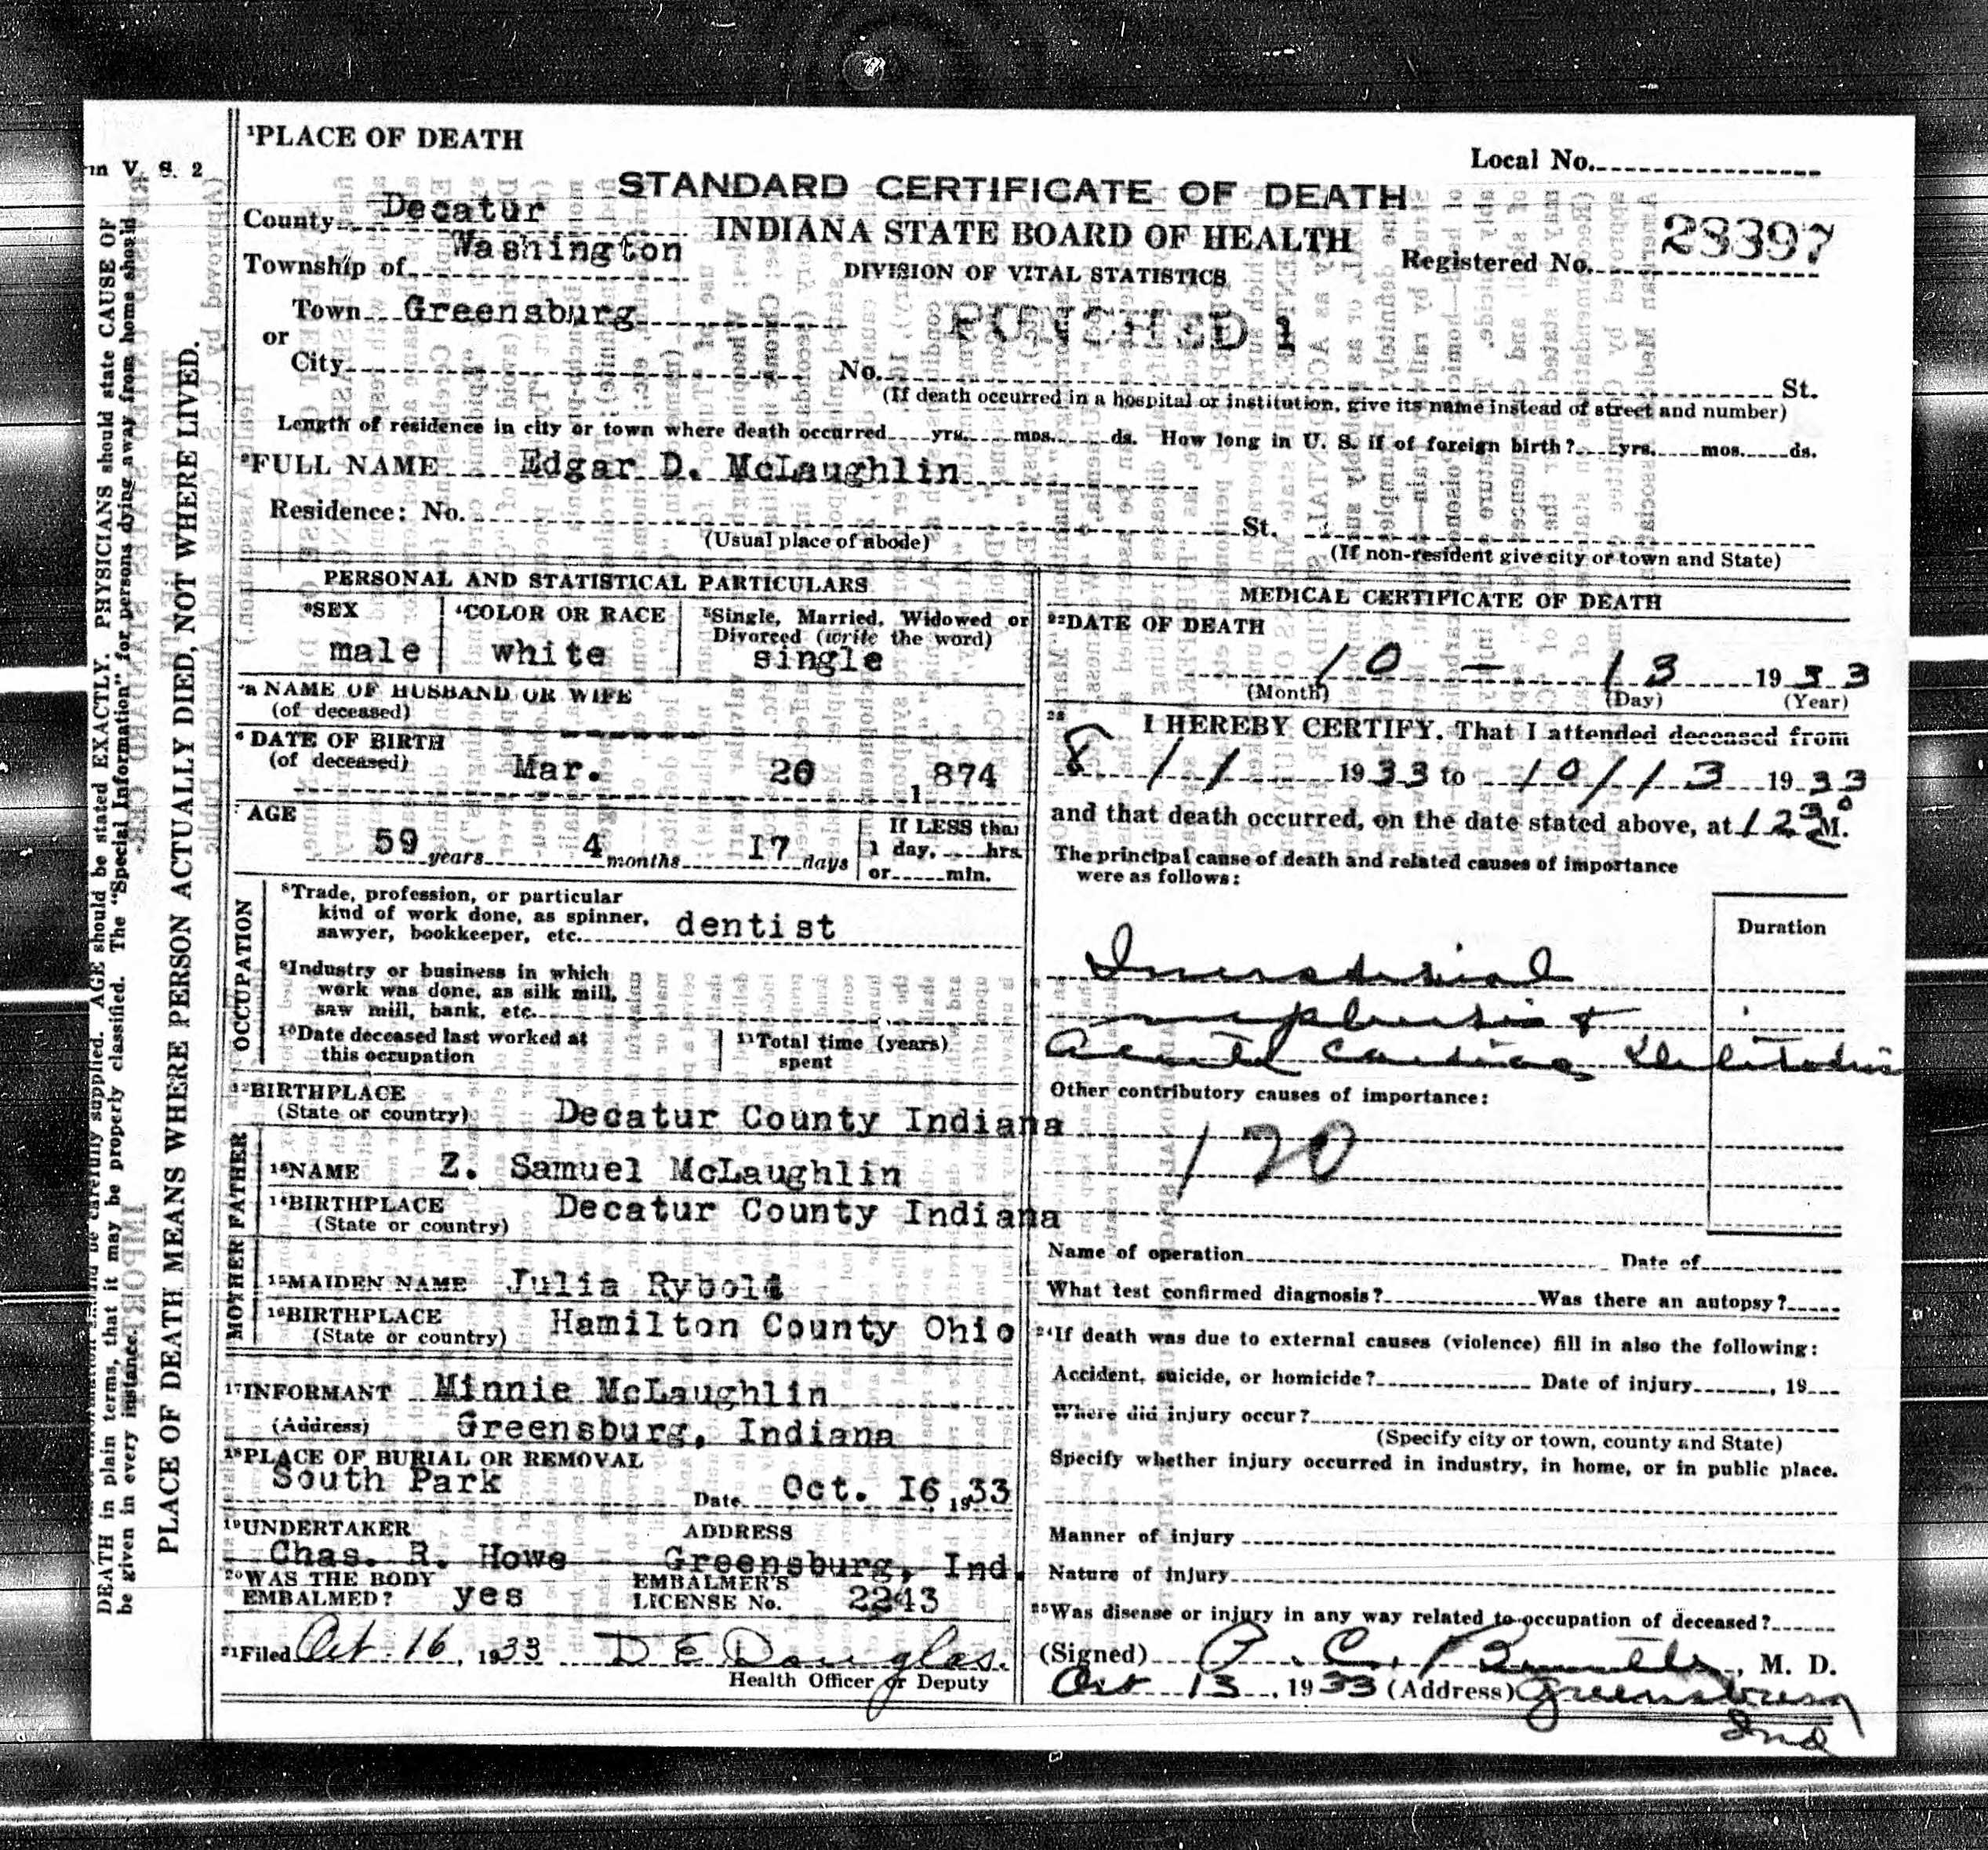 ¹PLACE OF DEATH
Local No.
m V. S. 2
STANDARD CERTIFICATE OF DEATH
County Decatur
INDIANA STATE BOARD OF HEALTH
Registered No. 28397
Township of Washington
DIVISION OF VITAL STATISTICS
Town Greensburg
PUNCHED 1
or
City No. St.
(If death occurred in a hospital or institution, give its name instead of street and number)
Length of residence in city or town where death occurred yrs. mos. ds. How long in U. S. if of foreign birth? yrs. mos. ds.
²FULL NAME Edgar D. McLaughlin
Residence: No. St.
(Usual place of abode)
(If non-resident give city or town and State)
PERSONAL AND STATISTICAL PARTICULARS
³SEX
male
⁴COLOR OR RACE
white
⁵Single, Married, Widowed or
Divorced (write the word)
single
⁵a NAME OF HUSBAND OR WIFE
(of deceased)
⁶DATE OF BIRTH
(of deceased) Mar. 26 1874
⁷AGE
59 years 4 months 17 days
If LESS than
1 day, hrs.
or min.
OCCUPATION
⁸Trade, profession, or particular
kind of work done, as spinner,
sawyer, bookkeeper, etc. dentist
⁹Industry or business in which
work was done, as silk mill,
saw mill, bank, etc.
¹⁰Date deceased last worked at
this occupation
¹¹Total time (years)
spent
¹²BIRTHPLACE
(State or country) Decatur County Indiana
FATHER
¹³NAME Z. Samuel McLaughlin
¹⁴BIRTHPLACE
(State or country) Decatur County Indiana
MOTHER
¹⁵MAIDEN NAME Julia Rybolt
¹⁶BIRTHPLACE
(State or country) Hamilton County Ohio
¹⁷INFORMANT Minnie McLaughlin
(Address) Greensburg, Indiana
¹⁸PLACE OF BURIAL OR REMOVAL
South Park Date Oct. 16, 1933
¹⁹UNDERTAKER ADDRESS
Chas. R. Howe Greensburg, Ind.
²⁰WAS THE BODY
EMBALMED? yes
EMBALMER'S
LICENSE No. 2243
²¹Filed Oct. 16, 1933 D E Douglas.
Health Officer or Deputy
MEDICAL CERTIFICATE OF DEATH
²²DATE OF DEATH
10 - 13 1933
(Month) (Day) (Year)
²³ I HEREBY CERTIFY, That I attended deceased from
8/1/ 1933 to 10/13 1933
and that death occurred, on the date stated above, at 12³⁰ M.
The principal cause of death and related causes of importance
were as follows:
Duration
nephritis &
acute cardiac
Other contributory causes of importance:
120
Name of operation Date of
What test confirmed diagnosis? Was there an autopsy?
²⁴If death was due to external causes (violence) fill in also the following:
Accident, suicide, or homicide? Date of injury , 19
Where did injury occur?
(Specify city or town, county and State)
Specify whether injury occurred in industry, in home, or in public place.
Manner of injury
Nature of injury
²⁵Was disease or injury in any way related to occupation of deceased?
(Signed) , M. D.
Oct 13, 1933 (Address) Greensburg
Ind
should be carefully supplied. AGE should be stated EXACTLY. PHYSICIANS should state CAUSE OF
DEATH in plain terms, that it may be properly classified. The "Special Information" for persons dying away from home should
be given in every instance.
PLACE OF DEATH MEANS WHERE PERSON ACTUALLY DIED, NOT WHERE LIVED.